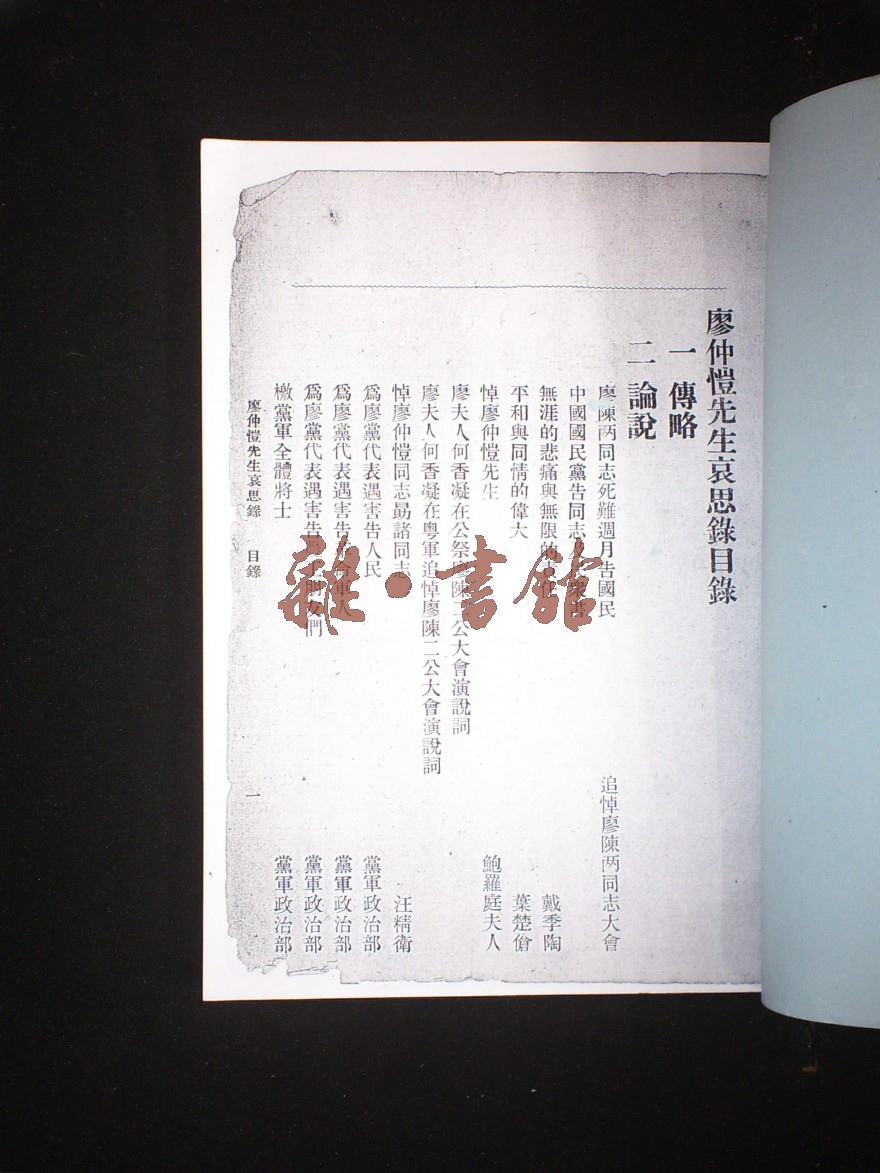 廖仲愷先生哀思錄目錄
一 傳略
二 論說
廖陳两同志死難週月告國民 追悼廖陳两同志大會
中國國民黨告同志及民衆書
無涯的悲痛與無限的責任 戴季陶
平和與同情的偉大 葉楚傖
悼廖仲愷先生 鮑羅庭夫人
廖夫人何香凝在公祭廖陳二公大會演說詞
廖夫人何香凝在粵軍追悼廖陳二公大會演說詞
悼廖仲愷同志勗諸同志 汪精衛
爲廖黨代表遇害告人民 黨軍政治部
爲廖黨代表遇害告革命軍人 黨軍政治部
爲廖黨代表遇害告農工朋友們 黨軍政治部
檄黨軍全體將士 黨軍政治部
廖仲愷先生哀思錄 目錄 一
雜·書館